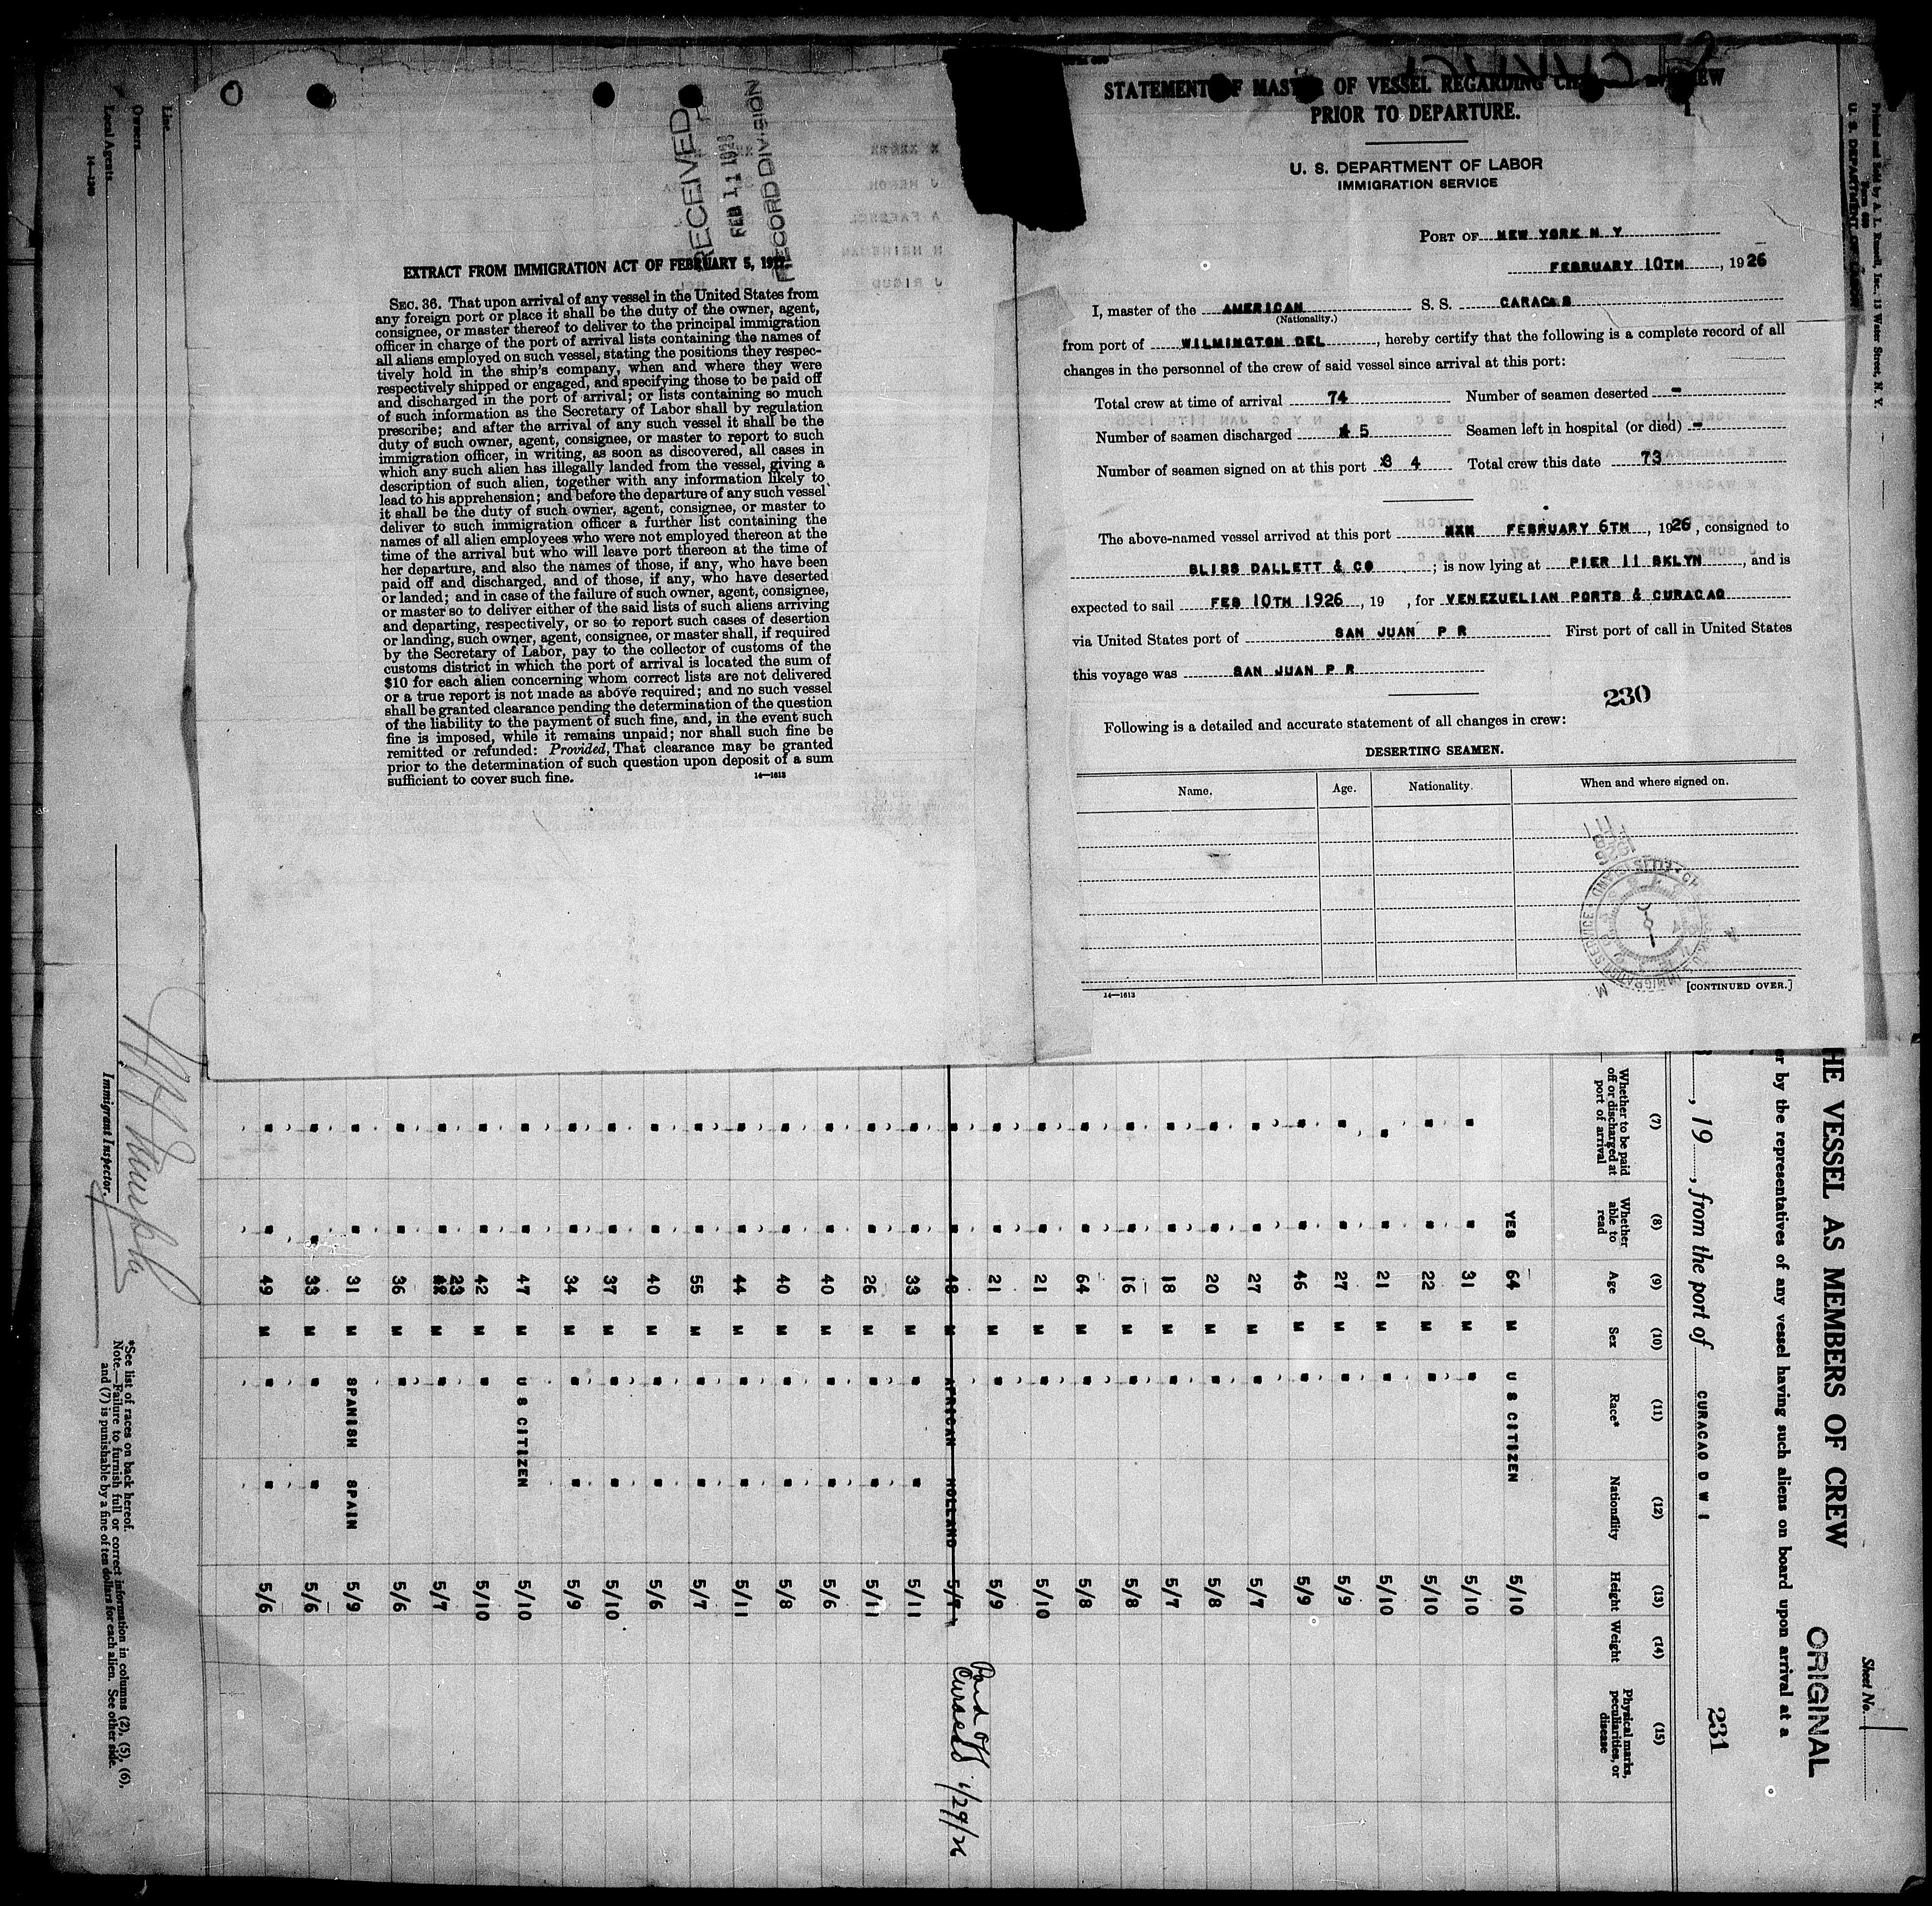 RECEIVED
FEB 11 1926
RECORD DIVISION
EXTRACT FROM IMMIGRATION ACT OF FEBRUARY 5, 1917.
SEC. 36. That upon arrival of any vessel in the United States from
any foreign port or place it shall be the duty of the owner, agent,
consignee, or master thereof to deliver to the principal immigration
officer in charge of the port of arrival lists containing the names of
all aliens employed on such vessel, stating the positions they respec-
tively hold in the ship's company, when and where they were
respectively shipped or engaged, and specifying those to be paid off
and discharged in the port of arrival; or lists containing so much
of such information as the Secretary of Labor shall by regulation
prescribe; and after the arrival of any such vessel it shall be the
duty of such owner, agent, consignee, or master to report to such
immigration officer, in writing, as soon as discovered, all cases in
which any such alien has illegally landed from the vessel, giving a
description of such alien, together with any information likely to
lead to his apprehension; and before the departure of any such vessel
it shall be the duty of such owner, agent, consignee, or master to
deliver to such immigration officer a further list containing the
names of all alien employees who were not employed thereon at the
time of the arrival but who will leave port thereon at the time of
her departure, and also the names of those, if any, who have been
paid off and discharged, and of those, if any, who have deserted
or landed; and in case of the failure of such owner, agent, consignee,
or master so to deliver either of the said lists of such aliens arriving
and departing, respectively, or so to report such cases of desertion
or landing, such owner, agent, consignee, or master shall, if required
by the Secretary of Labor, pay to the collector of customs of the
customs district in which the port of arrival is located the sum of
$10 for each alien concerning whom correct lists are not delivered
or a true report is not made as above required; and no such vessel
shall be granted clearance pending the determination of the question
of the liability to the payment of such fine, and, in the event such
fine is imposed, while it remains unpaid; nor shall such fine be
remitted or refunded: Provided, That clearance may be granted
prior to the determination of such question upon deposit of a sum
sufficient to cover such fine.
14—1613
STATEMENT OF MASTER OF VESSEL REGARDING CREW
PRIOR TO DEPARTURE.
U. S. DEPARTMENT OF LABOR
IMMIGRATION SERVICE
PORT OF NEW YORK N Y
FEBRUARY 10TH, 1926
I, master of the AMERICAN S. S. CARACAS
(Nationality.)
from port of WILMINGTON DEL, hereby certify that the following is a complete record of all
changes in the personnel of the crew of said vessel since arrival at this port:
Total crew at time of arrival 74 Number of seamen deserted -
Number of seamen discharged 5 Seamen left in hospital (or died) -
Number of seamen signed on at this port 4 Total crew this date 73
The above-named vessel arrived at this port FEBRUARY 6TH, 1926, consigned to
BLISS DALLETT & CO; is now lying at PIER 11 BKLYN, and is
expected to sail FEB 10TH 1926, 19 , for VENEZUELIAN PORTS & CURACAO
via United States port of SAN JUAN P R First port of call in United States
this voyage was SAN JUAN P R
230
Following is a detailed and accurate statement of all changes in crew:
DESERTING SEAMEN.
Name. Age. Nationality. When and where signed on.
14—1613 [CONTINUED OVER.]
Printed and Sold by A. L. Russell, Inc., 13 Water Street, N. Y.
Sheet No.
ORIGINAL
HE VESSEL AS MEMBERS OF CREW
er by the representatives of any vessel having such aliens on board upon arrival at a
, 19 , from the port of CURACAO D W I
231
(7) (8) (9) (10) (11) (12) (13) (14) (15)
Whether to be paid off or discharged at port of arrival
Whether able to read
Age
Sex
Race*
Nationality
Height
Weight
Physical marks, peculiarities, or disease
YES 64 M U S CITIZEN 5/10
" " 31 M " 5/10
" " 22 M " 5/10
" " 21 M " 5/10
" " 27 M " 5/9
" " 46 M " 5/9
" " 27 M " 5/7
" " 20 M " 5/8
" " 18 M " 5/7
" " 16 M " 5/8
" " 64 M " 5/8
" " 21 M " 5/10
" " 21 M " 5/9
" " 48 M AFRICAN HOLLAND 5/7 Paid Off Curacao 1/29/26
" " 33 M " " 5/11
" " 26 M " " 5/11
" " 40 M " " 5/6
" " 40 M " " 5/8
" " 44 M " " 5/11
" " 55 M " " 5/7
" " 40 M " " 5/6
" " 37 M " " 5/10
" " 34 M " " 5/9
" " 47 M U S CITIZEN 5/10
" " 42 M " 5/10
" " 23 M " 5/7
" " 36 M " 5/6
" " 31 M SPANISH SPAIN 5/9
" " 33 M " " 5/6
" " 49 M " " 5/6
*See list of races on back hereof.
Note.—Failure to furnish full or correct information in columns (2), (5), (6),
and (7) is punishable by a fine of ten dollars for each alien. See other side.
Immigrant Inspector.
Line
Owners
Local Agents
14—1240